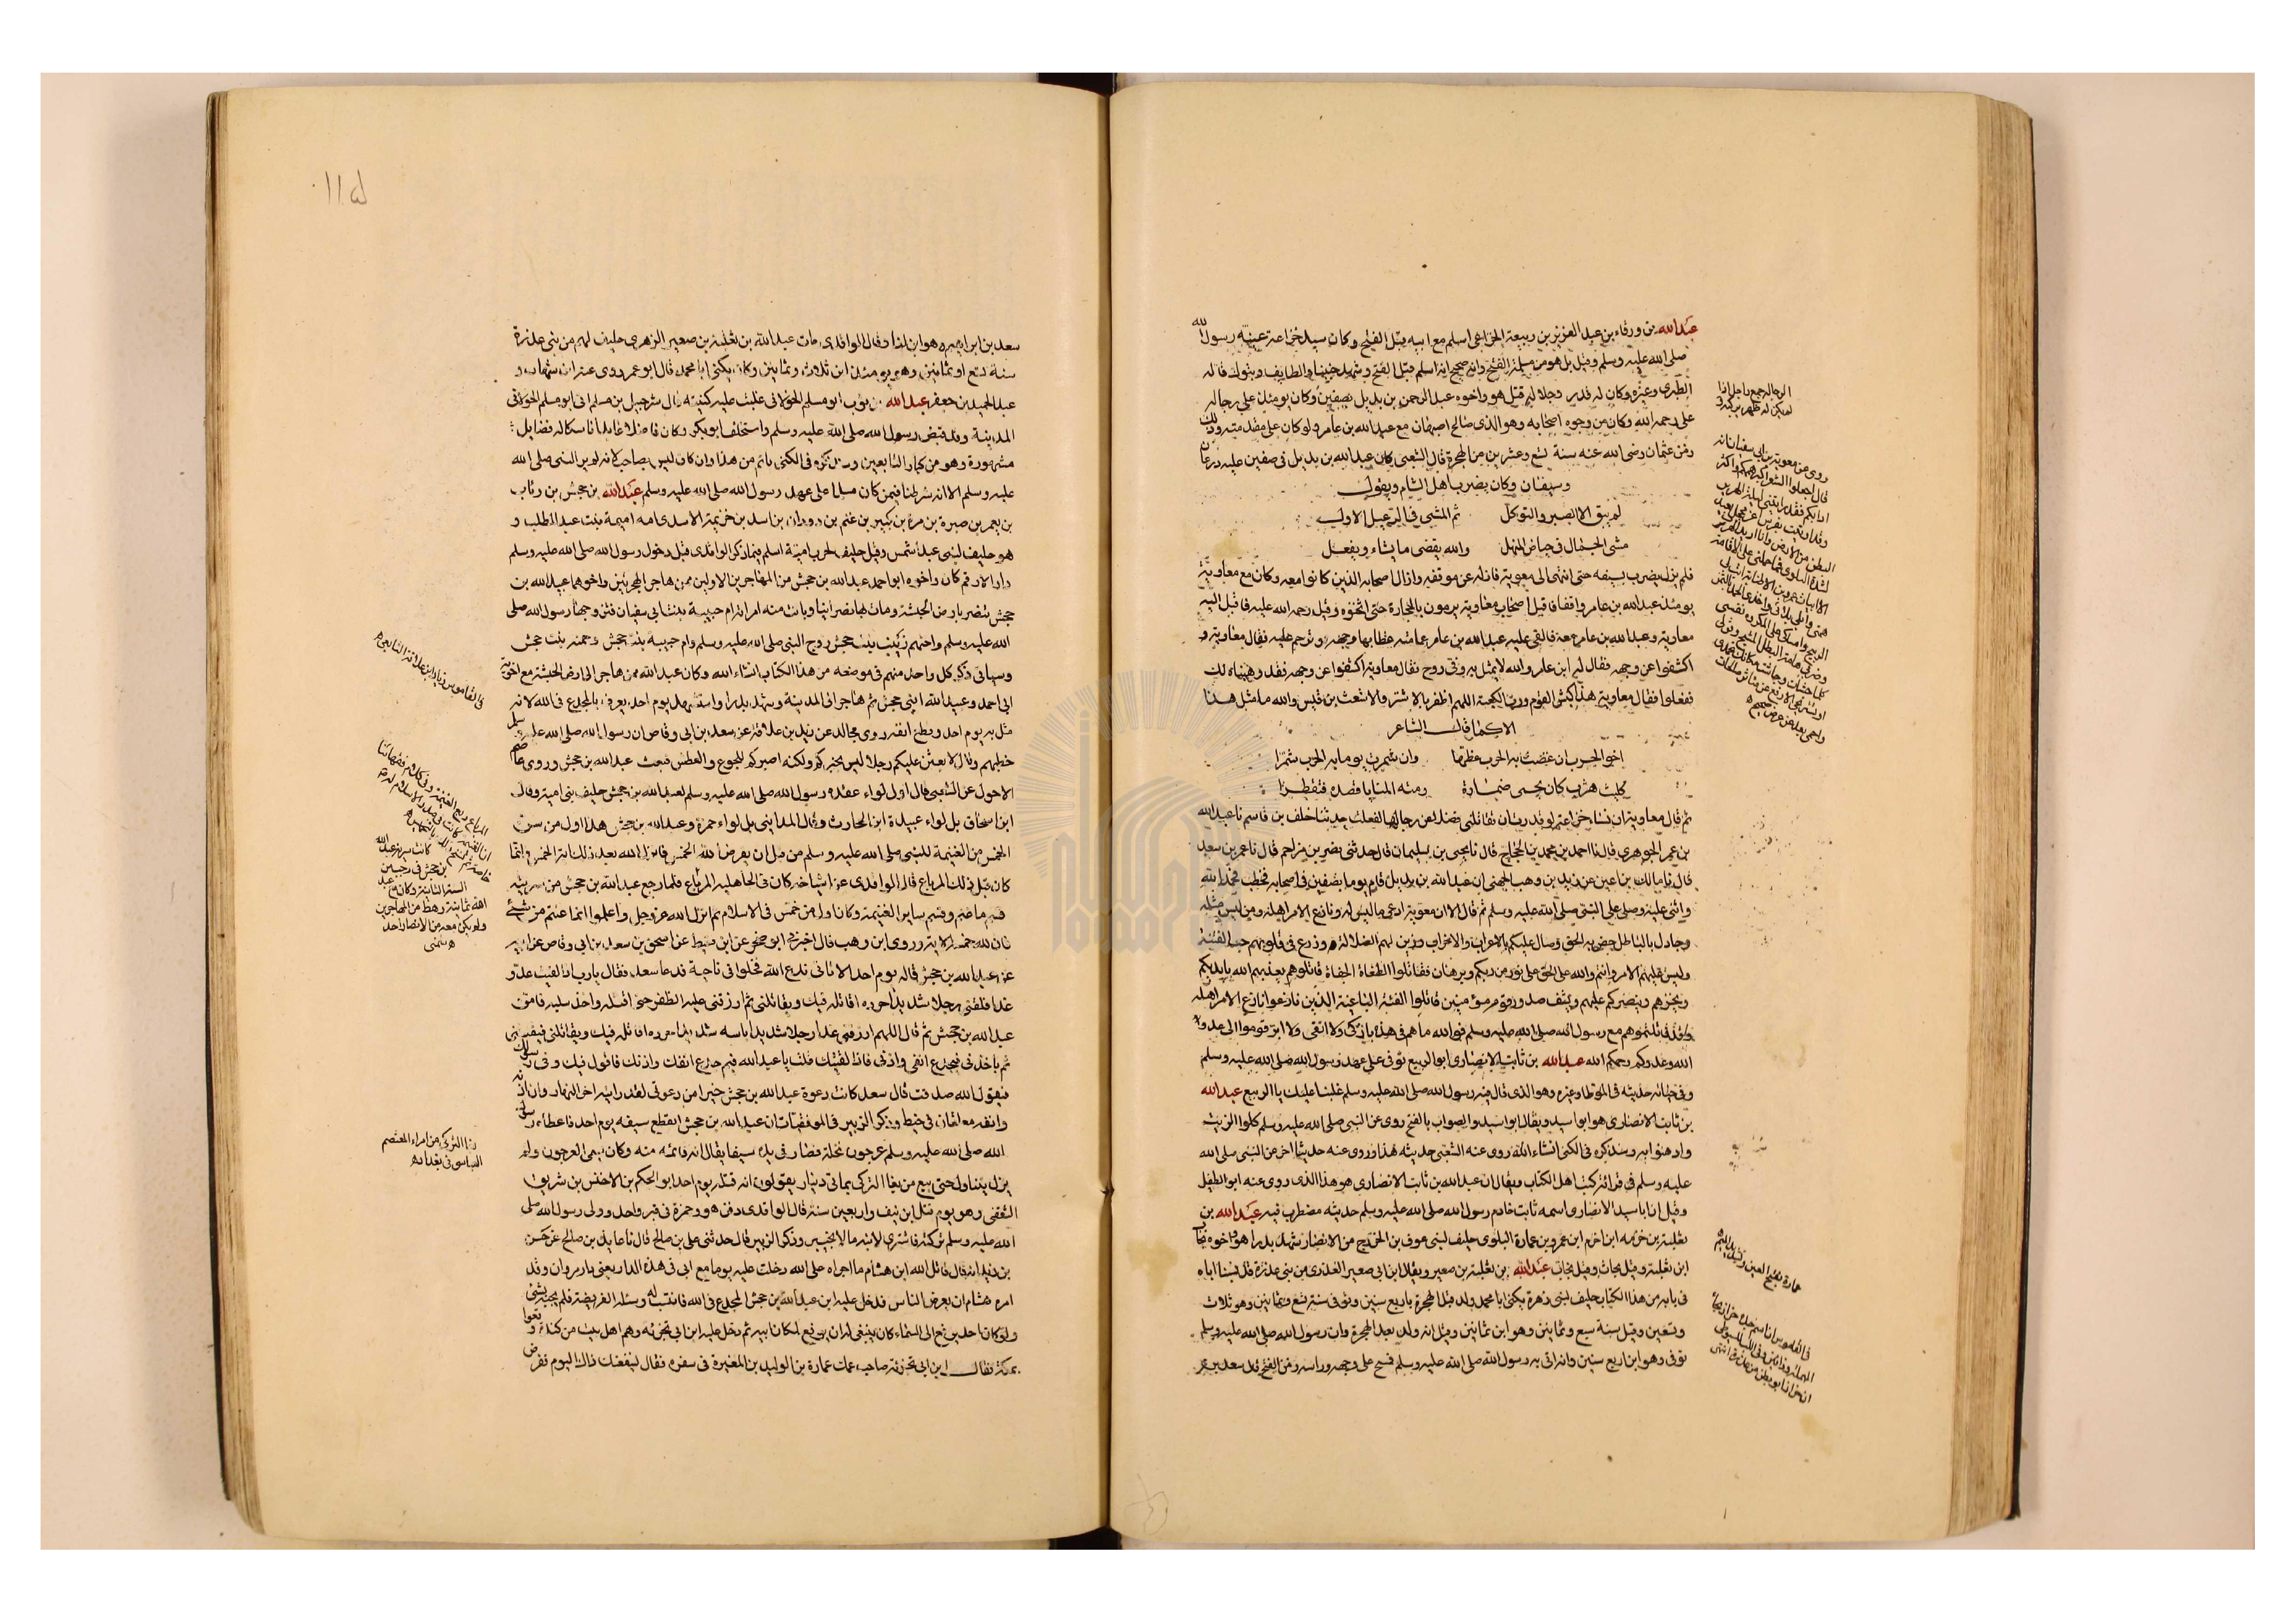 عبدالله بن ورقاء بن عبد العزيز بن ربيعة الخزاعي اسلم مع ابيه قبل الفتح وكان سيد خزاعة عيبة رسول الله
صلى الله عليه وسلم وقيل بل هو من مسلمة الفتح والصحيح انه اسلم قبل الفتح وشهد حنينا والطايف وتبوك قاله
الطبرى وغيره وكان له قدر وجلالة قتل هو واخوه عبد الرحمن بن بديل بصفين وكان يومئذ على رجاله
على رحمه الله وكان من وجوه اصحابه وهو الذى صالح اصبهان مع عبدالله بن عامر وكان على مقدمته وذلك
زمن عثمان رضى الله عنه سنة تسع وعشرين من الهجرة قال الشعبى كان عبدالله بن بديل فى صفين عليه درعان
وسيفان وكان يضرب اهل الشام ويقول
لم يبق الا الصبر والتوكل ثم المشى فى الرعيل الاول
مشى الجمال فى حياض المنهل والله يقضى ما يشاء ويفعل
فلم يزل يضرب بسيفه حتى انتهى الى معوية فازاله عن موقفه وازال اصحابه الذين كانوا معه وكان مع معاوية
يومئذ عبدالله بن عامر واقفا فاقبل اصحاب معاوية يرمونه بالحجارة حتى اثخنوه وقتل رحمه الله عليه فاقبل اليه
معاوية وعبدالله بن عامر معه فالقى عليه عبدالله بن عامر عمامته غطا بها وجهه وترحم عليه فقال معاوية
اكشفوا عن وجهه فقال له ابن عامر والله لا يمثل به وفى روح فقال معاوية اكشفوا عن وجهه فقد وهبناه لك
ففعلوا فقال معاوية هذا كبش القوم ورب الكعبة اللهم اظفر بالاشتر والاشعث بن قيس والله ما مثل هذا
الا كما قال الشاعر
اخو الحرب ان عضت به الحرب عضها وان شمرت يوما به الحرب شمرا
كليث هزبر كان يحمى ذماره رمته المنايا قصدها فتقطرا
ثم قال معاوية ان نساء خزاعة لو قدرت ان تقاتلنى فضلا عن رجالها لفعلت حدثنا خلف بن قاسم نا عبدالله
بن عمر الجوهرى قال نا احمد بن محمد بن الحجاج قال نا يحيى بن سليمان قال حدثنى نصر بن مزاحم قال نا عمر بن سعد
قال نا مالك بن اعين عن زيد بن وهب الجهنى ان عبدالله بن بديل قام يوما بصفين فى اصحابه فخطب فحمد الله
واثنى عليه وصلى على النبى صلى الله عليه وسلم ثم قال الا ان معوية ادعى ما ليس له ونازع الامر اهله ومن ليس مثله
وجادل بالباطل ليدحض به الحق وصال عليكم بالاعراب والاحزاب وزين لهم الضلالة وزرع فى قلوبهم حب الفتنة
ولبس عليهم الامر وانتم والله على الحق على نور من ربكم وبرهان فقاتلوا الطغاة الجفاة قاتلوهم يعذبهم الله بايديكم
ويخزهم وينصركم عليهم ويشف صدور قوم مؤمنين قاتلوا الفئة الباغية الذين نازعوا الامر اهله
وقد قاتلتموهم مع رسول الله صلى الله عليه وسلم فوالله ما هم فى هذه بازكى ولا اتقى ولا ابر قوموا الى عدو
الله وعدوكم رحمكم الله عبدالله بن ثابت الانصارى ابو الربيع توفى على عهد رسول الله صلى الله عليه وسلم
حديثه فى الموطا وغيره وهو الذى قال فيه رسول الله صلى الله عليه وسلم غلبنا عليك يا ابا الربيع عبدالله
بن ثابت الانصارى هو ابو اسيد ويقال ابو اسيد والصواب بالفتح روى عن النبى صلى الله عليه وسلم كلوا الزيت
وادهنوا به وسنذكره فى الكنى انشاء الله روى عنه الشعبى حديثه هذا وروى عنه حديثا اخر عن النبى صلى الله
عليه وسلم فى قرائة كتب اهل الكتاب ويقال ان عبدالله بن ثابت الانصارى هو هذا الذى روى عنه ابو الطفيل
وقيل ان ابا سيد الانصارى اسمه ثابت خادم رسول الله صلى الله عليه وسلم حديثه مضطرب فيه عبدالله بن
ثعلبة بن خزمه ابن اخرم ابن عمرو بن عمارة البلوى حليف لبنى عوف بن الخزرج من الانصار شهد بدرا هو واخوه
ابن ثعلبة وقيل بحاث وقيل نجاب عبدالله بن ثعلبة بن صعير ويقال ابن ابى صعير العذرى من بنى عذرة قد نسبنا اباه
فى بابه من هذا الكتاب حليف لبنى زهرة يكنى ابا محمد ولد قبل الهجرة باربع سنين وتوفى سنة تسع وثمانين وهو ثلاث
وتسعين وقيل سنة سبع وثمانين وهو ابن ثمانين وقيل انه ولد بعد الهجرة وان رسول الله صلى الله عليه وسلم
توفى وهو ابن اربع سنين وانه اتى به رسول الله صلى الله عليه وسلم فمسح على وجهه وراسه زمن الفتح
سعد بن ابراهيم وقال الواقدى مات عبدالله بن ثعلبة بن صعير الزهرى حليف لهم من بنى عذرة
سنة تسع وثمانين وهو يومئذ ابن ثلاث وثمانين وكان يكنى ابا محمد قال ابو عمر روى عنه ابن شهاب و
عبد الحميد بن جعفر عبدالله بن ثوب ابو مسلم الخولانى غلبت عليه كنيته قال شرحبيل بن مسلم اتى ابو مسلم الخولانى
المدينة وقد قبض رسول الله صلى الله عليه وسلم واستخلف ابو بكر وكان فاضلا عابدا ناسكا له فضايل
مشهورة وهو من كبار التابعين وسنذكره فى الكنى باتم من هذا وان كان ليس بصاحب لانه لم ير النبى صلى الله
عليه وسلم الا انه شرطنا فيمن كان مسلما على عهد رسول الله صلى الله عليه وسلم عبدالله بن جحش بن رئاب
بن يعمر بن صبرة بن مرة بن كبير بن غنم بن دودان بن اسد بن خزيمة الاسدى امه اميمة بنت عبد المطلب و
هو حليف لبنى عبد شمس وقيل حليف لحرب بن امية اسلم فيما ذكر الواقدى قبل دخول رسول الله صلى الله عليه وسلم
دار الارقم كان واخوه ابو احمد عبدالله بن جحش من المهاجرين الاولين ممن هاجر الهجرتين واخوهما عبيدالله بن
جحش تنصر بارض الحبشة ومات بها نصرانيا وبانت منه امراته ام حبيبة بنت ابى سفيان فتزوجها رسول الله صلى
الله عليه وسلم واختهم زينب بنت جحش زوج النبى صلى الله عليه وسلم وام حبيبة بنت جحش وحمنه بنت جحش
وسياتى ذكر كل واحد منهم فى موضعه من هذا الكتاب انشاء الله وكان عبدالله ممن هاجر الى ارض الحبشة مع اخويه
ابى احمد وعبيدالله ابنى جحش ثم هاجر الى المدينة وشهد بدرا واستشهد يوم احد يعرف بالمجدع فى الله لانه
مثل به يوم احد وقطع انفه روى مجالد عن زياد بن علاقة عن سعد بن ابى وقاص ان رسول الله صلى الله عليه وسلم
خطبهم وقال لابعثن عليكم رجلا ليس بخيركم ولكنه اصبركم للجوع والعطش فبعث عبدالله بن جحش وروى عاصم
الاحول عن الشعبى قال اول لواء عقده رسول الله صلى الله عليه وسلم لعبدالله بن جحش حليف بنى امية وقال
ابن اسحاق بل لواء عبيدة ابن الحارث وقال المداينى بل لواء حمزة وعبدالله بن جحش هذا اول من سن
الخمس من الغنيمة للنبى صلى الله عليه وسلم من قبل ان يفرض الله الخمس فانزل الله بعد ذلك اية الخمس وانما
كان قبل ذلك المرباع قال الواقدى عن اشياخه كان فى الجاهلية المرباع فلما رجع عبدالله بن جحش من سريته
خمس ما غنم وقسم ساير الغنيمة وكان اول من خمس فى الاسلام ثم انزل الله عز وجل واعلموا انما غنمتم من شئ
فان لله خمسه الاية وروى ابن وهب قال اخبرنى ابو صخر عن ابن قسيط عن اسحق بن سعد بن ابى وقاص عن ابيه
عن عبدالله بن جحش قال له يوم احد الا تاتى ندع الله فخلوا فى ناحية فدعا سعد فقال يا رب اذا لقيت عدو
غدا فلقنى رجلا شديدا حرده اقاتله فيك ويقاتلنى ثم ارزقنى عليه الظفر حتى اقتله واخذ سلبه فامن
عبدالله بن جحش ثم قال اللهم ارزقنى غدا رجلا شديدا باسه شديدا حرده اقاتله فيك ويقاتلنى فيقتلنى
ثم ياخذنى فيجدع انفى واذنى فاذا لقيتك قلت يا عبدالله فيم جدع انفك واذنك فاقول فيك وفى رسولك
فيقول الله صدقت قال سعد كانت دعوة عبدالله بن جحش خيرا من دعوتى لقد رايته اخر النهار وان اذنه
وانفه معلقان فى خيط وذكر الزبير فى الموفقيات ان عبدالله بن جحش انقطع سيفه يوم احد فاعطاه رسول
الله صلى الله عليه وسلم عرجون نخلة فصار فى يده سيفا يقال ان قائمه منه وكان يسمى العرجون ولم
يزل يتناول حتى بيع من بغا التركى بماتى دينار يقولون انه قتله يوم احد ابو الحكم بن الاخنس بن شريق
الثقفى وهو يوم قتل ابن نيف واربعين سنة قال الواقدى دفن هو وحمزة فى قبر واحد وولى رسول الله صلى
الله عليه وسلم تركته فاشترى لابنه مالا بخيبر وذكر الزبير قال حدثنى على بن صالح
امره هشام ان يعرض الناس فدخل عليه ابن عبدالله بن جحش المجدع فى الله فانتسب له وسئله الفريضة فلم يجبه بشئ
ولو كان احد يرفع الى السماء كان ينبغى له ان يرفع لمكان ابيه ثم دخل عليه ابن ابى تجزئة وهم اهل بيت من كندة وقعوا
بمكة فقال ابن ابى تجزئة صاحب عمك عمارة بن الوليد بن المغيرة فى سفره فقال لينفعنك ذلك اليوم ففرض